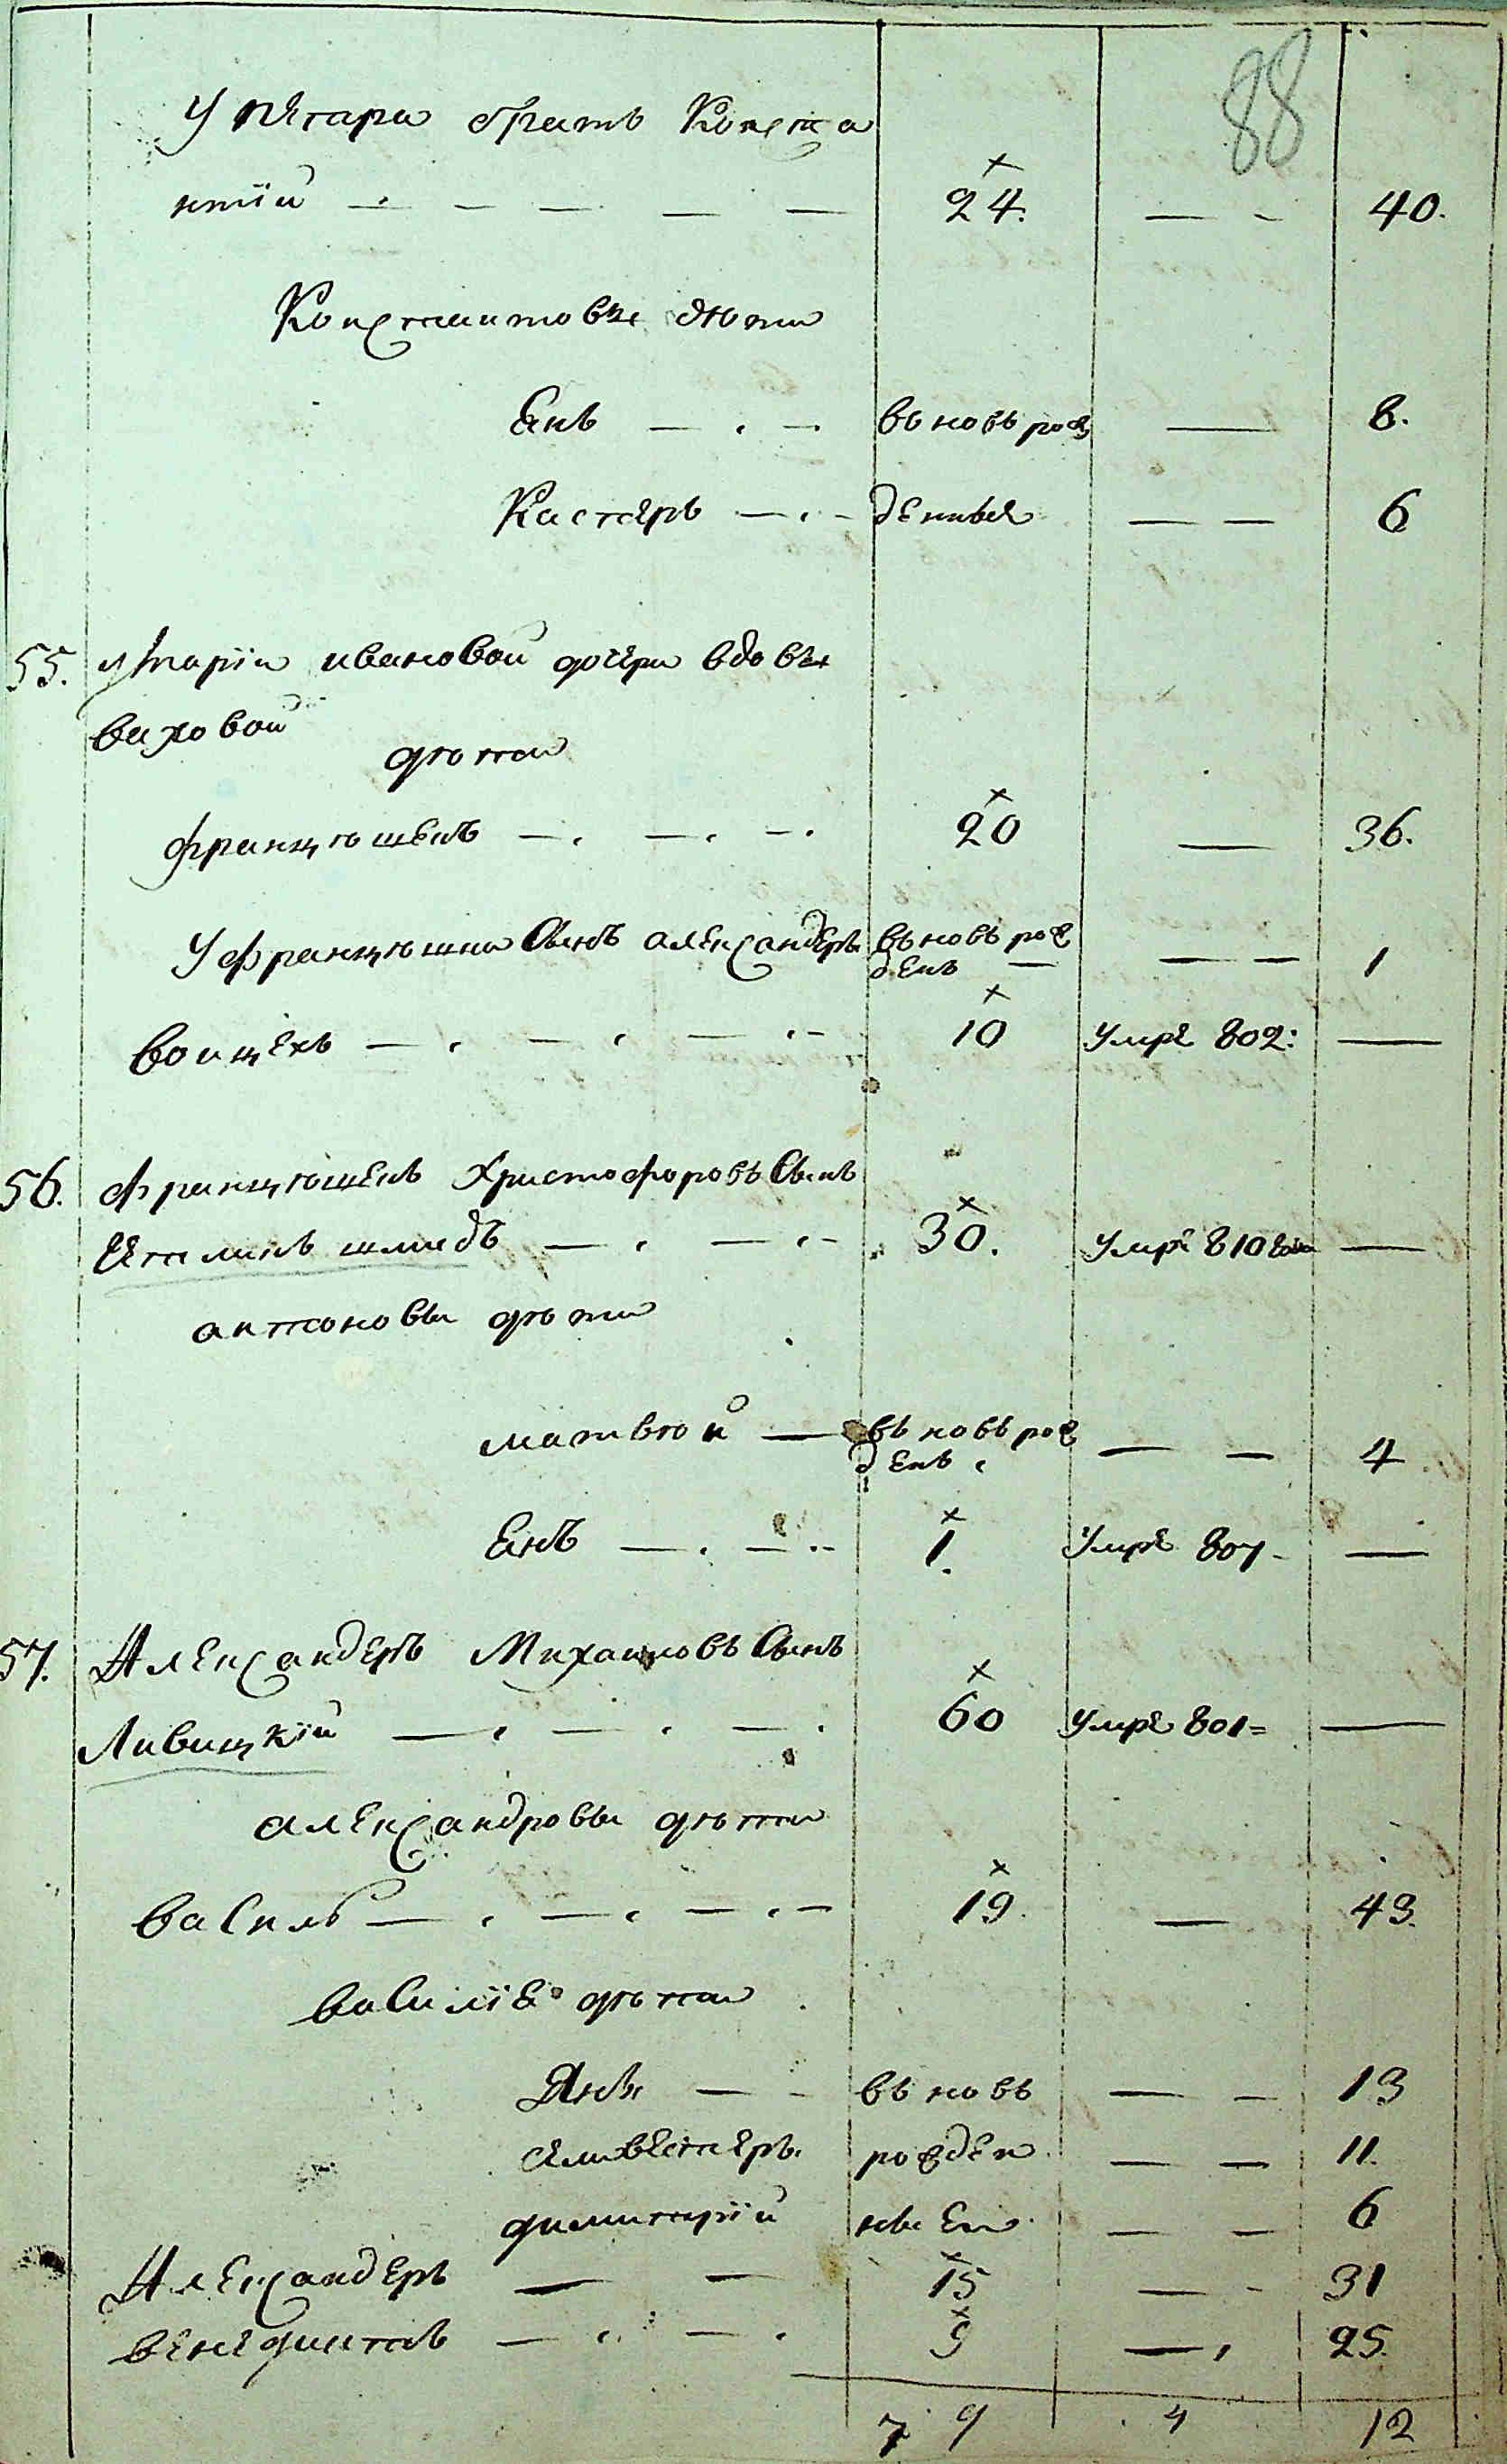 88
У Петара братъ Конста
нтiй — — — — — 24. — — 40.
Константовы дѣти
Янъ — . — въновь рож — 8.
Касперъ — . — денные — — 6
55. Марiи ивановой дочери вдовы
ваховой
дѣти
францѣшекъ — . — . — . 20 — 36.
У францѣшка Сынъ александеръ въновь рож
денъ — — — 1
воицехъ — . — . — . — 10 Умре 802: —
56. францѣшекъ Христофоровъ Сынъ
30. Умре 810 —
антоновы дѣти
матвѣй — въновь рож
денъ . — — 4
Янъ — . — . . 1. Умре 807 — —
57. Александеръ Михаиловъ Сынъ
Ливицкiй — . — . — . 60 Умре 801= —
александровы дѣти
василь — . — . — . — 19. — 43.
василiе дѣти
Янъ — — въновь — — 13
селивестеръ рожден — — 11.
димитрiй ные — — 6
Александеръ — — 15 — — 31
венедиктъ — . — . 9 — . 25.
7 9 4 12